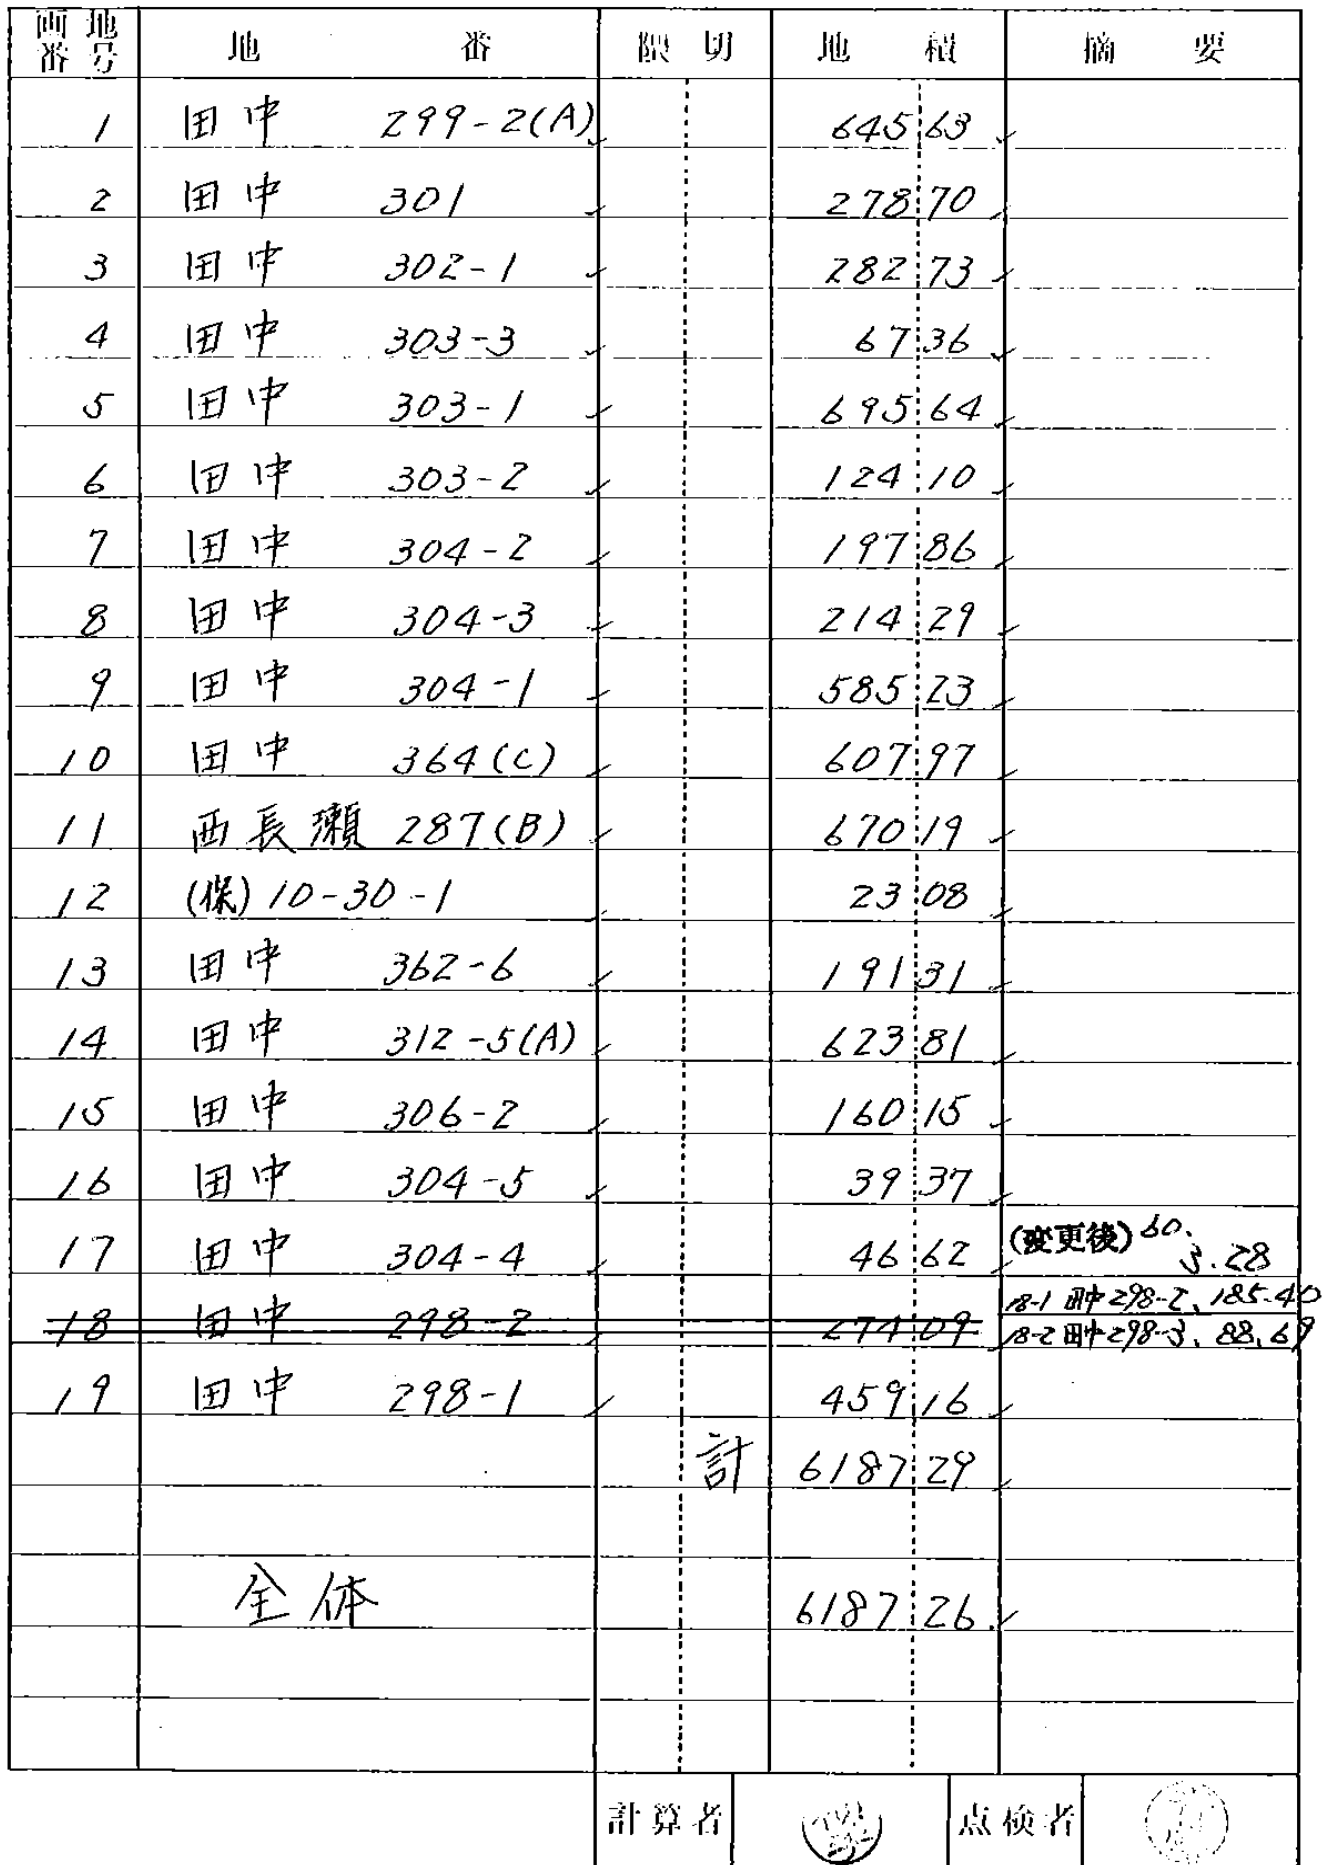 画地番号 地番 隅切 地積 摘要
1 田中 299-2(A) 645 63
2 田中 301 278 70
3 田中 302-1 282 73
4 田中 303-3 67 36
5 田中 303-1 695 64
6 田中 303-2 124 10
7 田中 304-2 197 86
8 田中 304-3 214 29
9 田中 304-1 585 23
10 田中 364(C) 607 97
11 西長瀬 287(B) 670 19
12 (保) 10-30-1 23 08
13 田中 362-6 191 31
14 田中 312-5(A) 623 81
15 田中 306-2 160 15
16 田中 304-5 39 37
17 田中 304-4 46 62 (変更後) 60. 3.28
18 田中 298-2 274 09 18-1 田中298-2、185.40
18-2 田中298-3、88.69
19 田中 298-1 459 16
計 6187 29
全体 6187 26
計算者 点検者